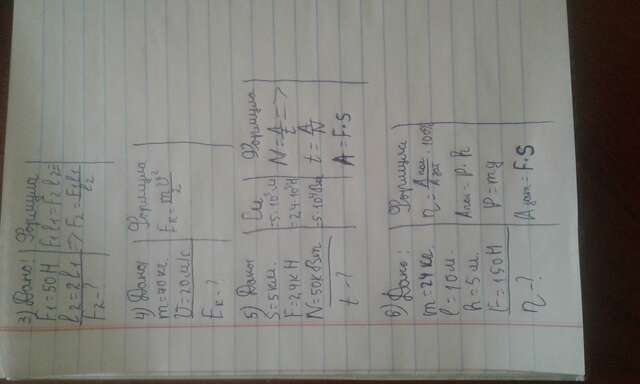 3) Дано: Формула
F₁=50Н F₁l₁=F₂l₂=
l₂=2l₁ => F₂=F₁l₁/l₂
F₂-?
4) Дано Формула
m=70кг Eк=mV²/2
V=20м/с
Eк-?
5) Дано Си Формула
S=5км. =5·10³м N=A/t =>
F=24кН =24·10³Н t=A/N
N=50кВт =5·10⁴Вт A=F·S
t-?
6) Дано: Формула
m=24кг η=Aпол/Aзат·100%
l=10м. Aпол=P·h
h=5м P=mg
F=150Н Aзат=F·S
η-?